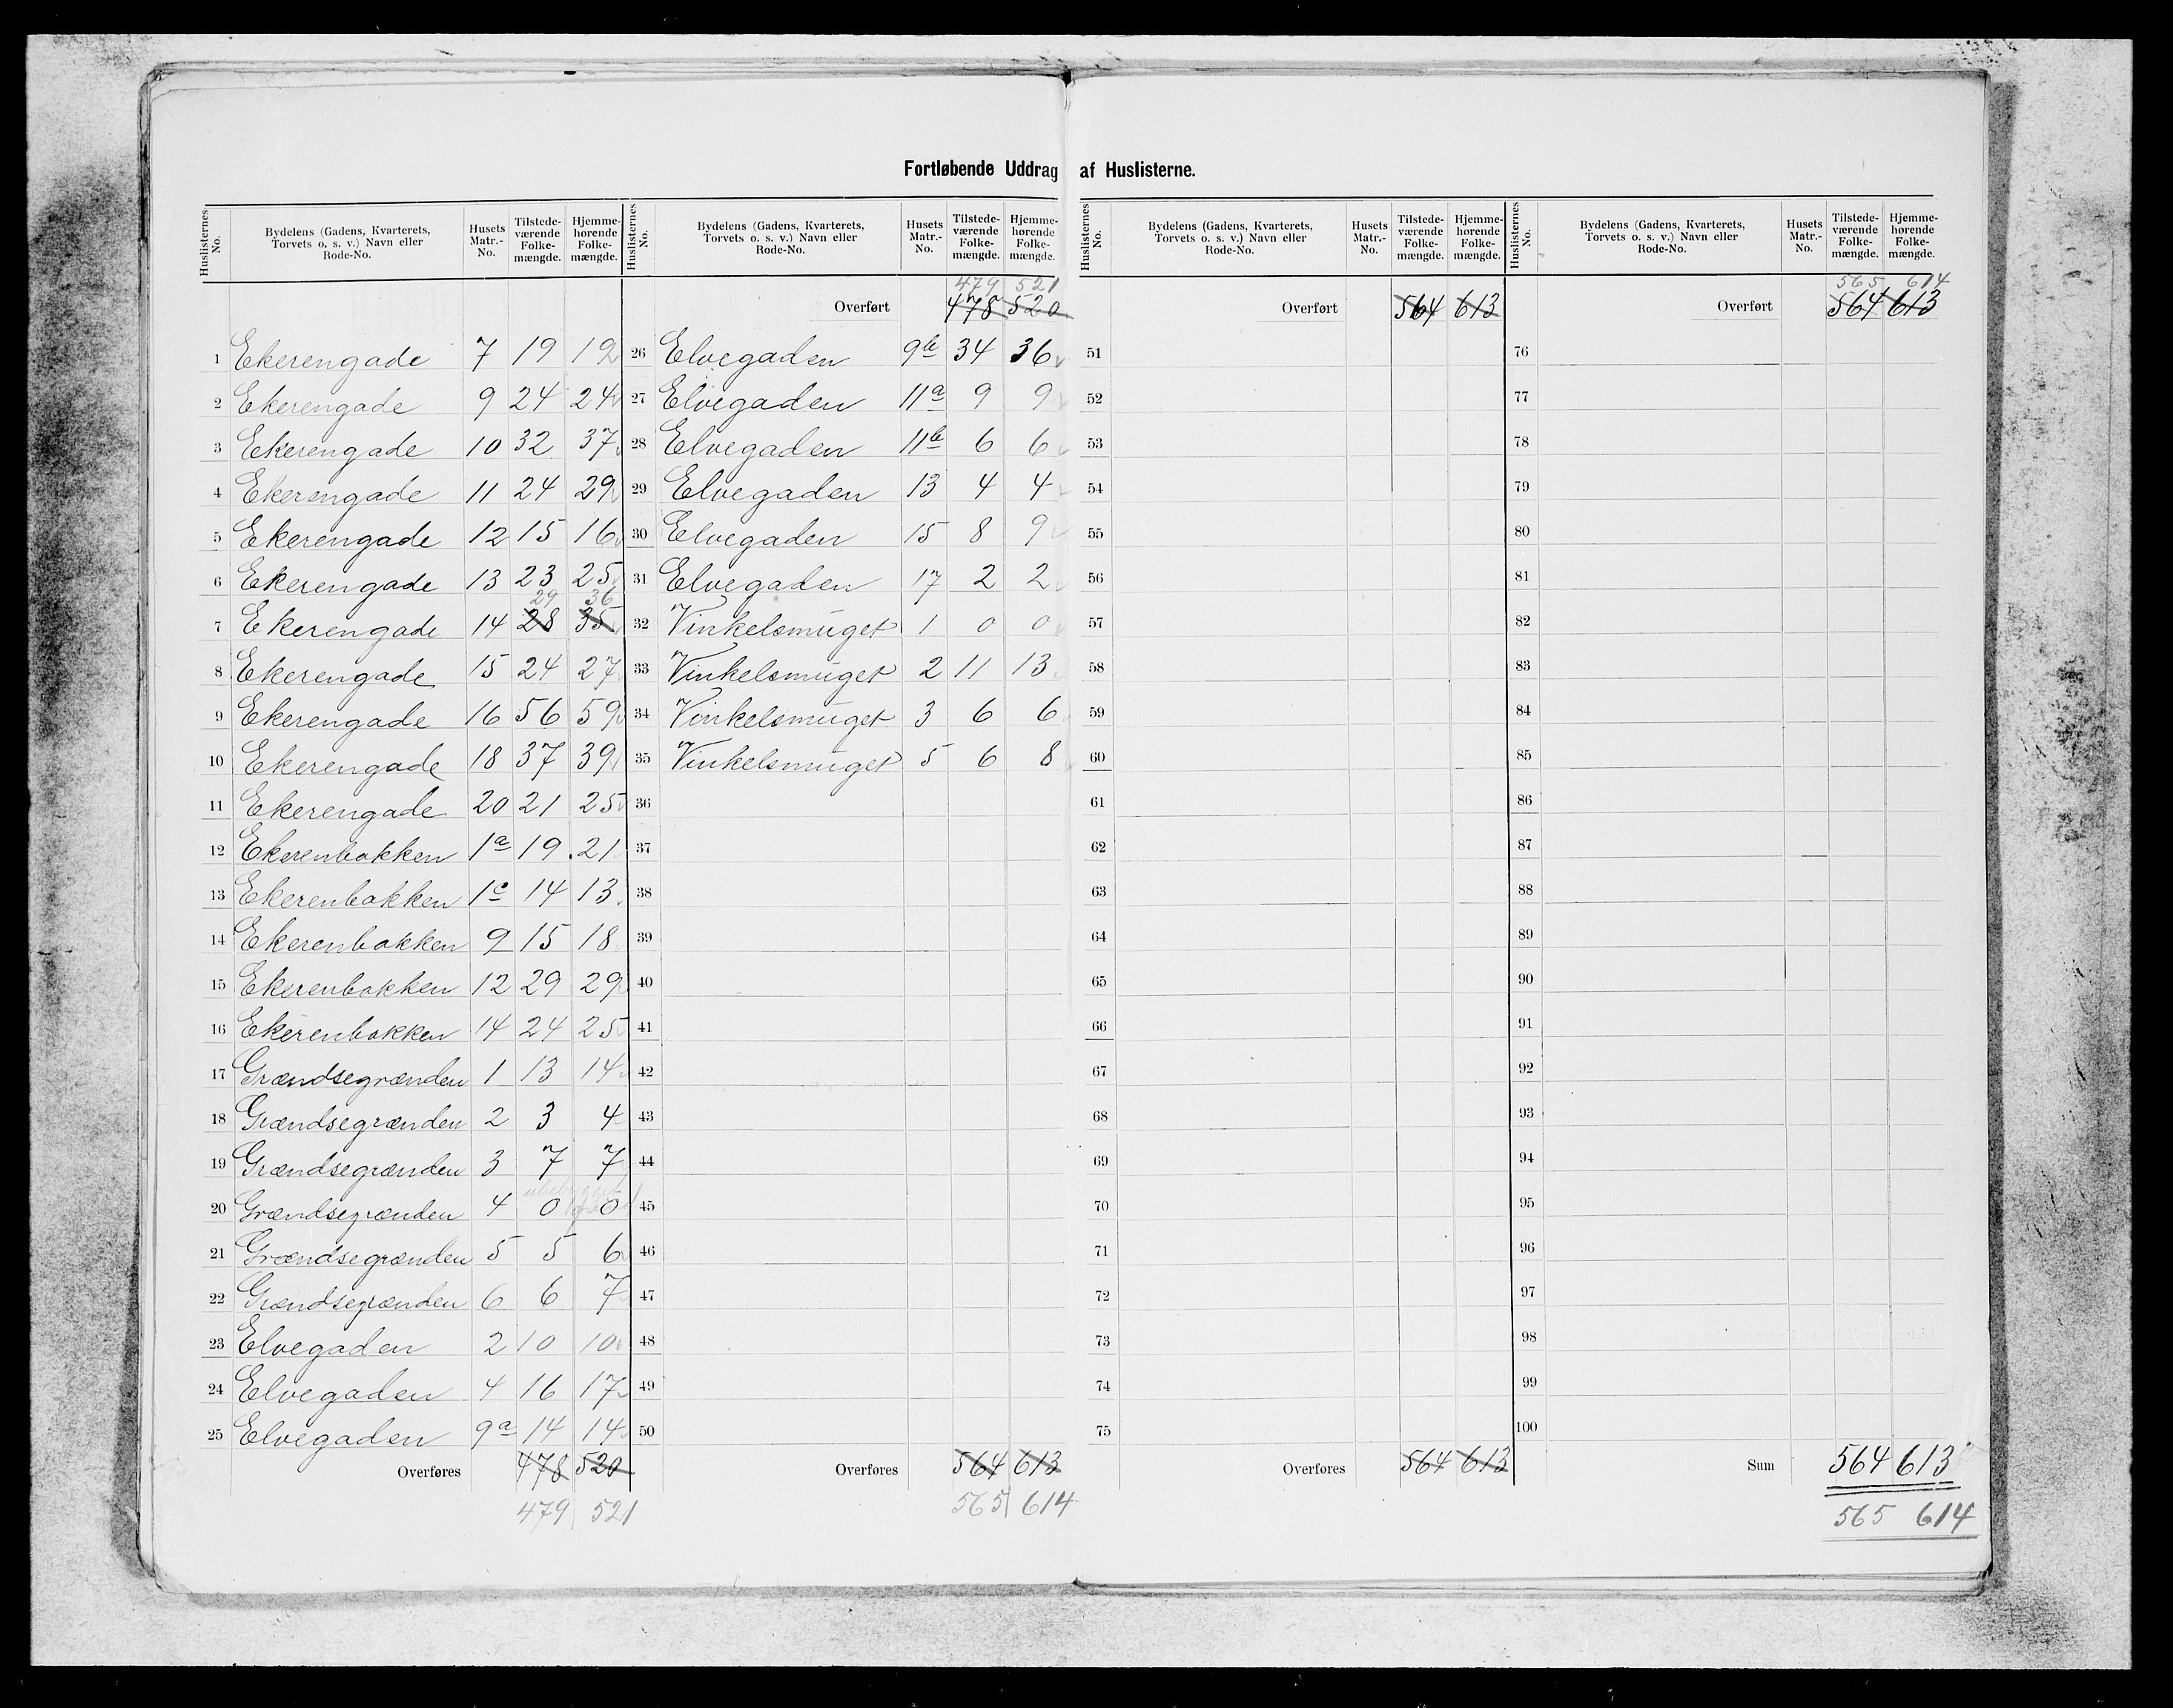 Fortløbende Uddrag af Huslisterne.
Huslisternes No. Bydelens (Gadens, Kvarterets, Torvets o. s. v.) Navn eller Rode-No. Husets Matr.-No. Tilstede-værende Folke-mængde. Hjemme-hørende Folke-mængde.
1 Ekerengade 7 19 19
2 Ekerengade 9 24 24
3 Ekerengade 10 32 37
4 Ekerengade 11 24 29
5 Ekerengade 12 15 16
6 Ekerengade 13 23 25
29 36
7 Ekerengade 14 28 35
8 Ekerengade 15 24 27
9 Ekerengade 16 56 59
10 Ekerengade 18 37 39
11 Ekerengade 20 21 25
12 Ekerenbakken 1a 19 21
13 Ekerenbakken 1c 14 13
14 Ekerenbakken 9 15 18
15 Ekerenbakken 12 29 29
16 Ekerenbakken 14 24 25
17 Grændsegrænden 1 13 14
18 Grændsegrænden 2 3 4
19 Grændsegrænden 3 7 7
20 Grændsegrænden 4 0 0
21 Grændsegrænden 5 5 6
22 Grændsegrænden 6 6 7
23 Elvegaden 2 10 10
24 Elvegaden 4 16 17
25 Elvegaden 9a 14 14
Overføres 478 520
479 521
Huslisternes No. Bydelens (Gadens, Kvarterets, Torvets o. s. v.) Navn eller Rode-No. Husets Matr.-No. Tilstede-værende Folke-mængde. Hjemme-hørende Folke-mængde.
479 521
Overført 478 520
26 Elvegaden 9b 34 36
27 Elvegaden 11a 9 9
28 Elvegaden 11b 6 6
29 Elvegaden 13 4 4
30 Elvegaden 15 8 9
31 Elvegaden 17 2 2
32 Vinkelsmuget 1 0 0
33 Vinkelsmuget 2 11 13
34 Vinkelsmuget 3 6 6
35 Vinkelsmuget 5 6 8
36
37
38
39
40
41
42
43
44
45
46
47
48
49
50
Overføres 564 613
565 614
Huslisternes No. Bydelens (Gadens, Kvarterets, Torvets o. s. v.) Navn eller Rode-No. Husets Matr.-No. Tilstede-værende Folke-mængde. Hjemme-hørende Folke-mængde.
Overført 564 613
51
52
53
54
55
56
57
58
59
60
61
62
63
64
65
66
67
68
69
70
71
72
73
74
75
Overføres 564 613
Huslisternes No. Bydelens (Gadens, Kvarterets, Torvets o. s. v.) Navn eller Rode-No. Husets Matr.-No. Tilstede-værende Folke-mængde. Hjemme-hørende Folke-mængde.
565 614
Overført 564 613
76
77
78
79
80
81
82
83
84
85
86
87
88
89
90
91
92
93
94
95
96
97
98
99
100
Sum 564 613
565 614